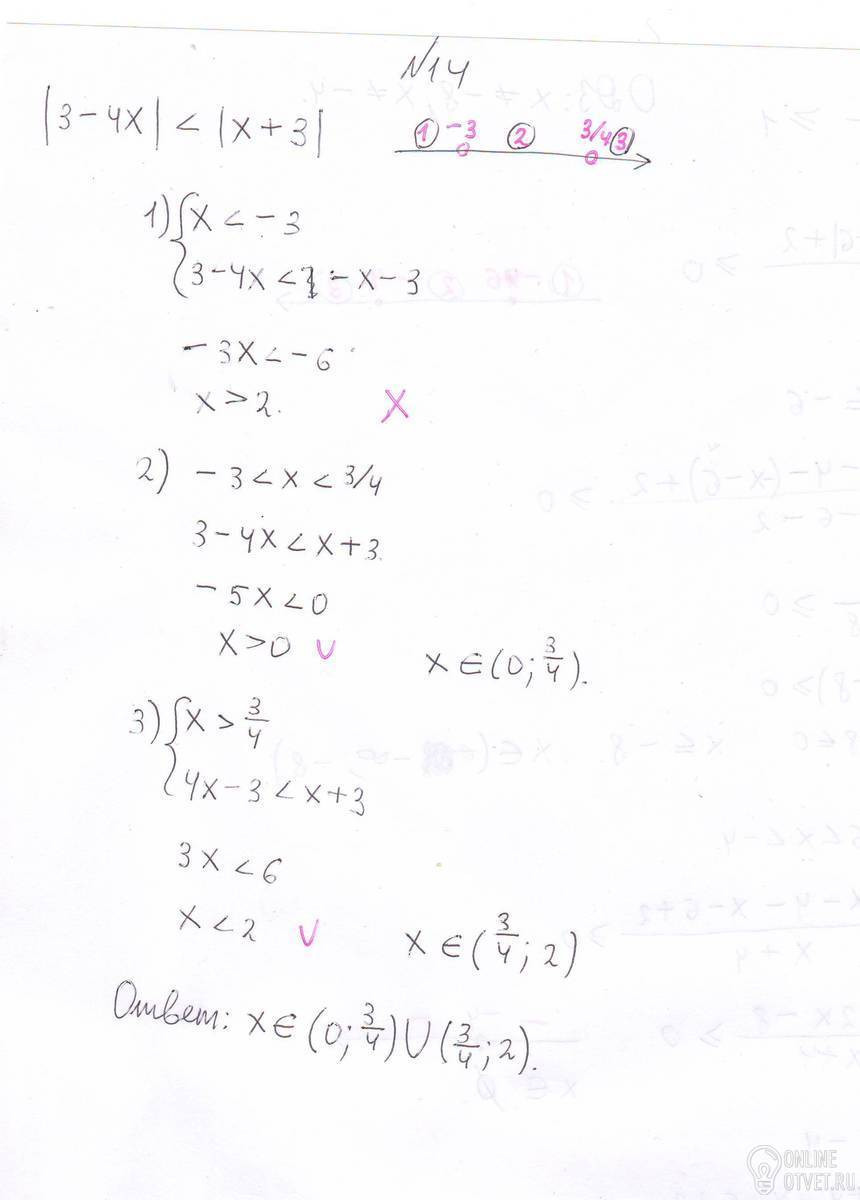 N14
|3-4x| < |x+3|
① -3 ② 3/4 ③
1) { x < -3
3-4x < -x-3
-3x < -6
x > 2. X
2) -3 < x < 3/4
3-4x < x+3.
-5x < 0
x > 0 V x ∈ (0; 3/4).
3) { x > 3/4
4x-3 < x+3
3x < 6
x < 2 V x ∈ (3/4; 2)
Ответ: x ∈ (0; 3/4) ∪ (3/4; 2).
ONLINE
OTVET.RU